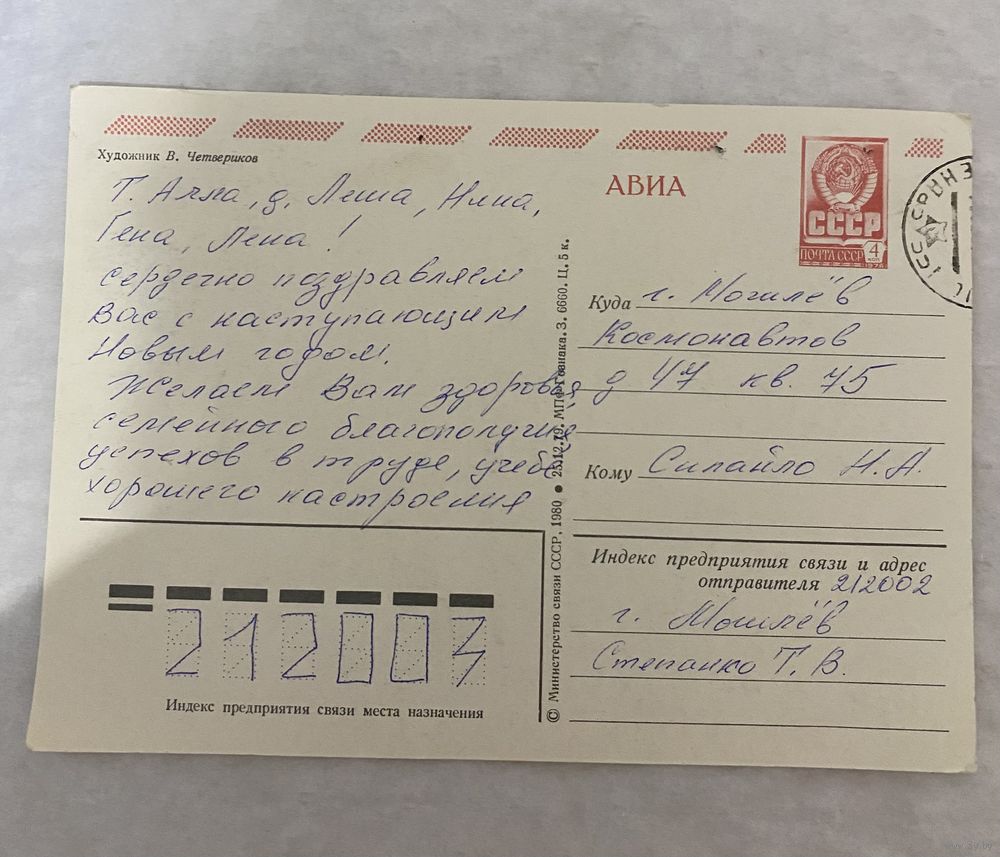 Художник В. Четвериков
Т. Алла, д. Леша, Нина,
Гена, Лена!
сердечно поздравляем
Вас с наступающим
Новым годом.
Желаем Вам здоровья
семейного благополучия
успехов в труде, учебе
хорошего настроения
212003
Индекс предприятия связи места назначения
© Министерство связи СССР, 1980 ● 25.12.79. МПФ Гознака. З. 6660. Ц. 5 к.
АВИА
СССР
ПОЧТА СССР 4 коп
1978
Куда г. Могилёв
Космонавтов
д 47 кв. 75
Кому Силайло Н. А.
Индекс предприятия связи и адрес
отправителя 212002
г. Могилёв
Степанко Т. В.